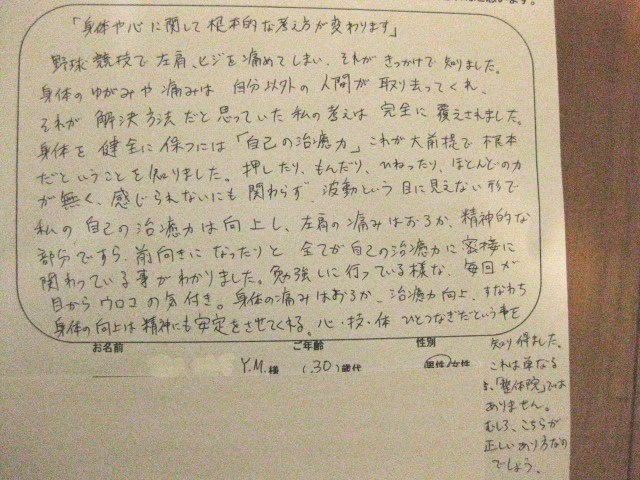 「身体や心に関して根本的な考え方が変わります」
野球競技で左肩、ヒジを痛めてしまい、それがきっかけで知りました。
身体のゆがみや痛みは 自分以外の人間が取り去ってくれ、
それが解決方法だと思っていた私の考えは完全に覆えされました。
身体を健全に保つには「自己の治癒力」これが大前提で根本
だということを知りました。押したり、もんだり、ひねったり、ほとんどの力
が無く、感じられないにも関わらず、波動という目に見えない形で
私の自己の治癒力は向上し、左肩の痛みはおろか、精神的な
部分ですら前向きになったりと全てが自己の治癒力に密接に
関わっている事がわかりました。勉強しに行っている様な、毎回が
目からウロコの気付き。身体の痛みはおろか、治癒力向上、すなわち
身体の向上は精神にも安定をさせてくれる。心・技・体 ひとつなぎだという事を
お名前 ご年齢 性別
Y.M.様 (30)歳代 男性 女性
知り得ました。
これは単なる
「整体院」では
ありません。
むしろ、こちらが
正しいあり方なの
でしょう。